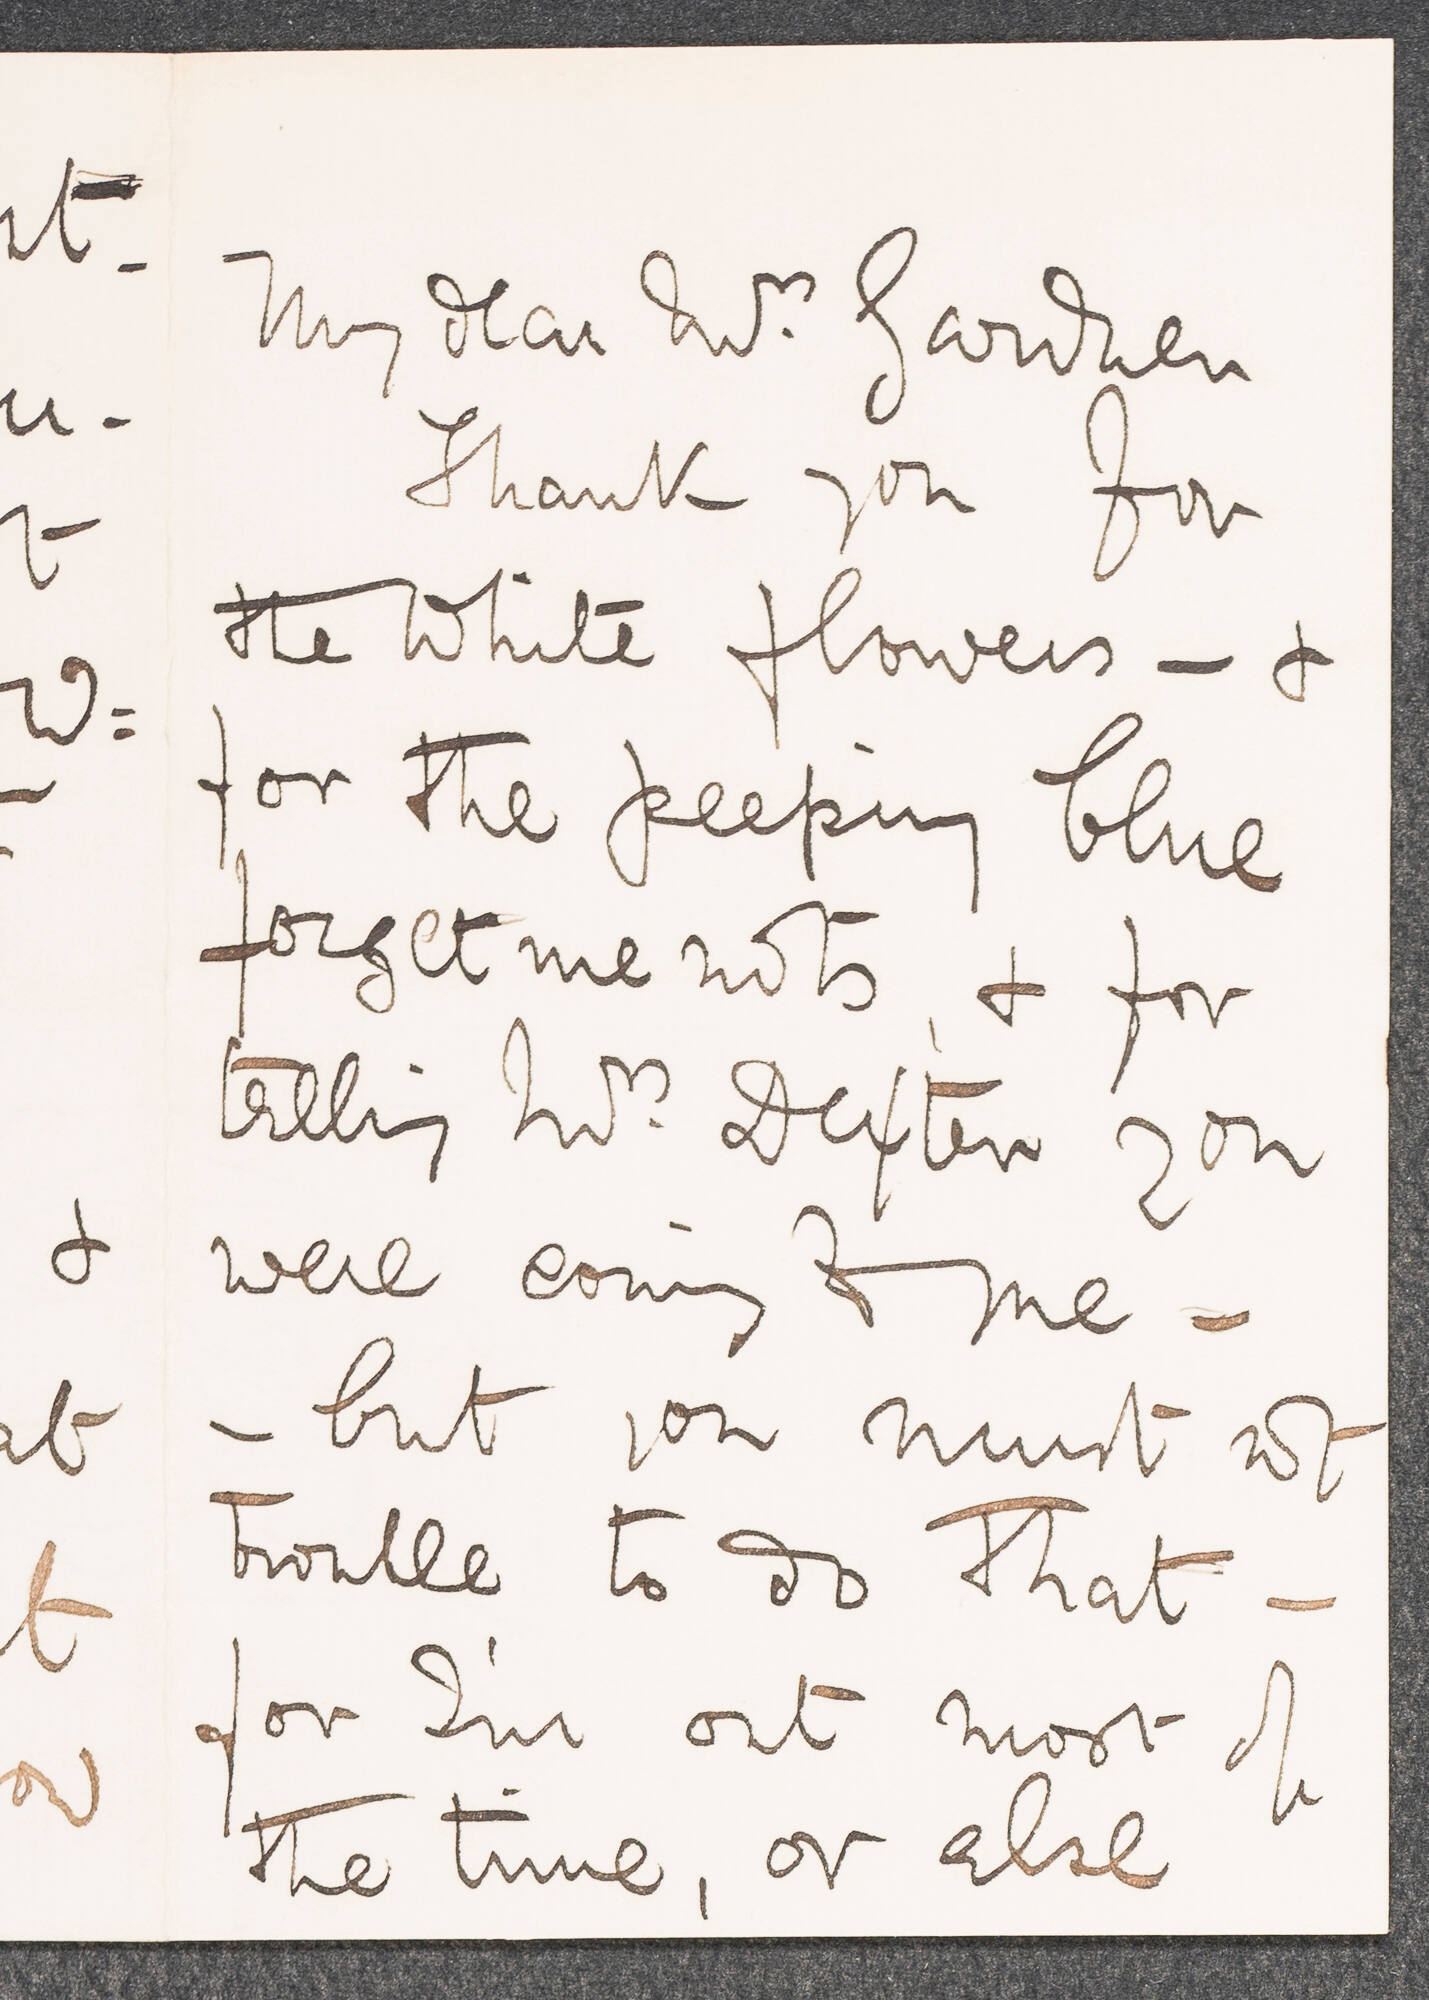 My dear Mrs. Gardner
Thank you for
the white flowers – &
for the peeping blue
forget me nots, & for
telling Mrs. Dexter you
were coming to me –
– but you must not
trouble to do that –
for I'm out most of
the time, or else